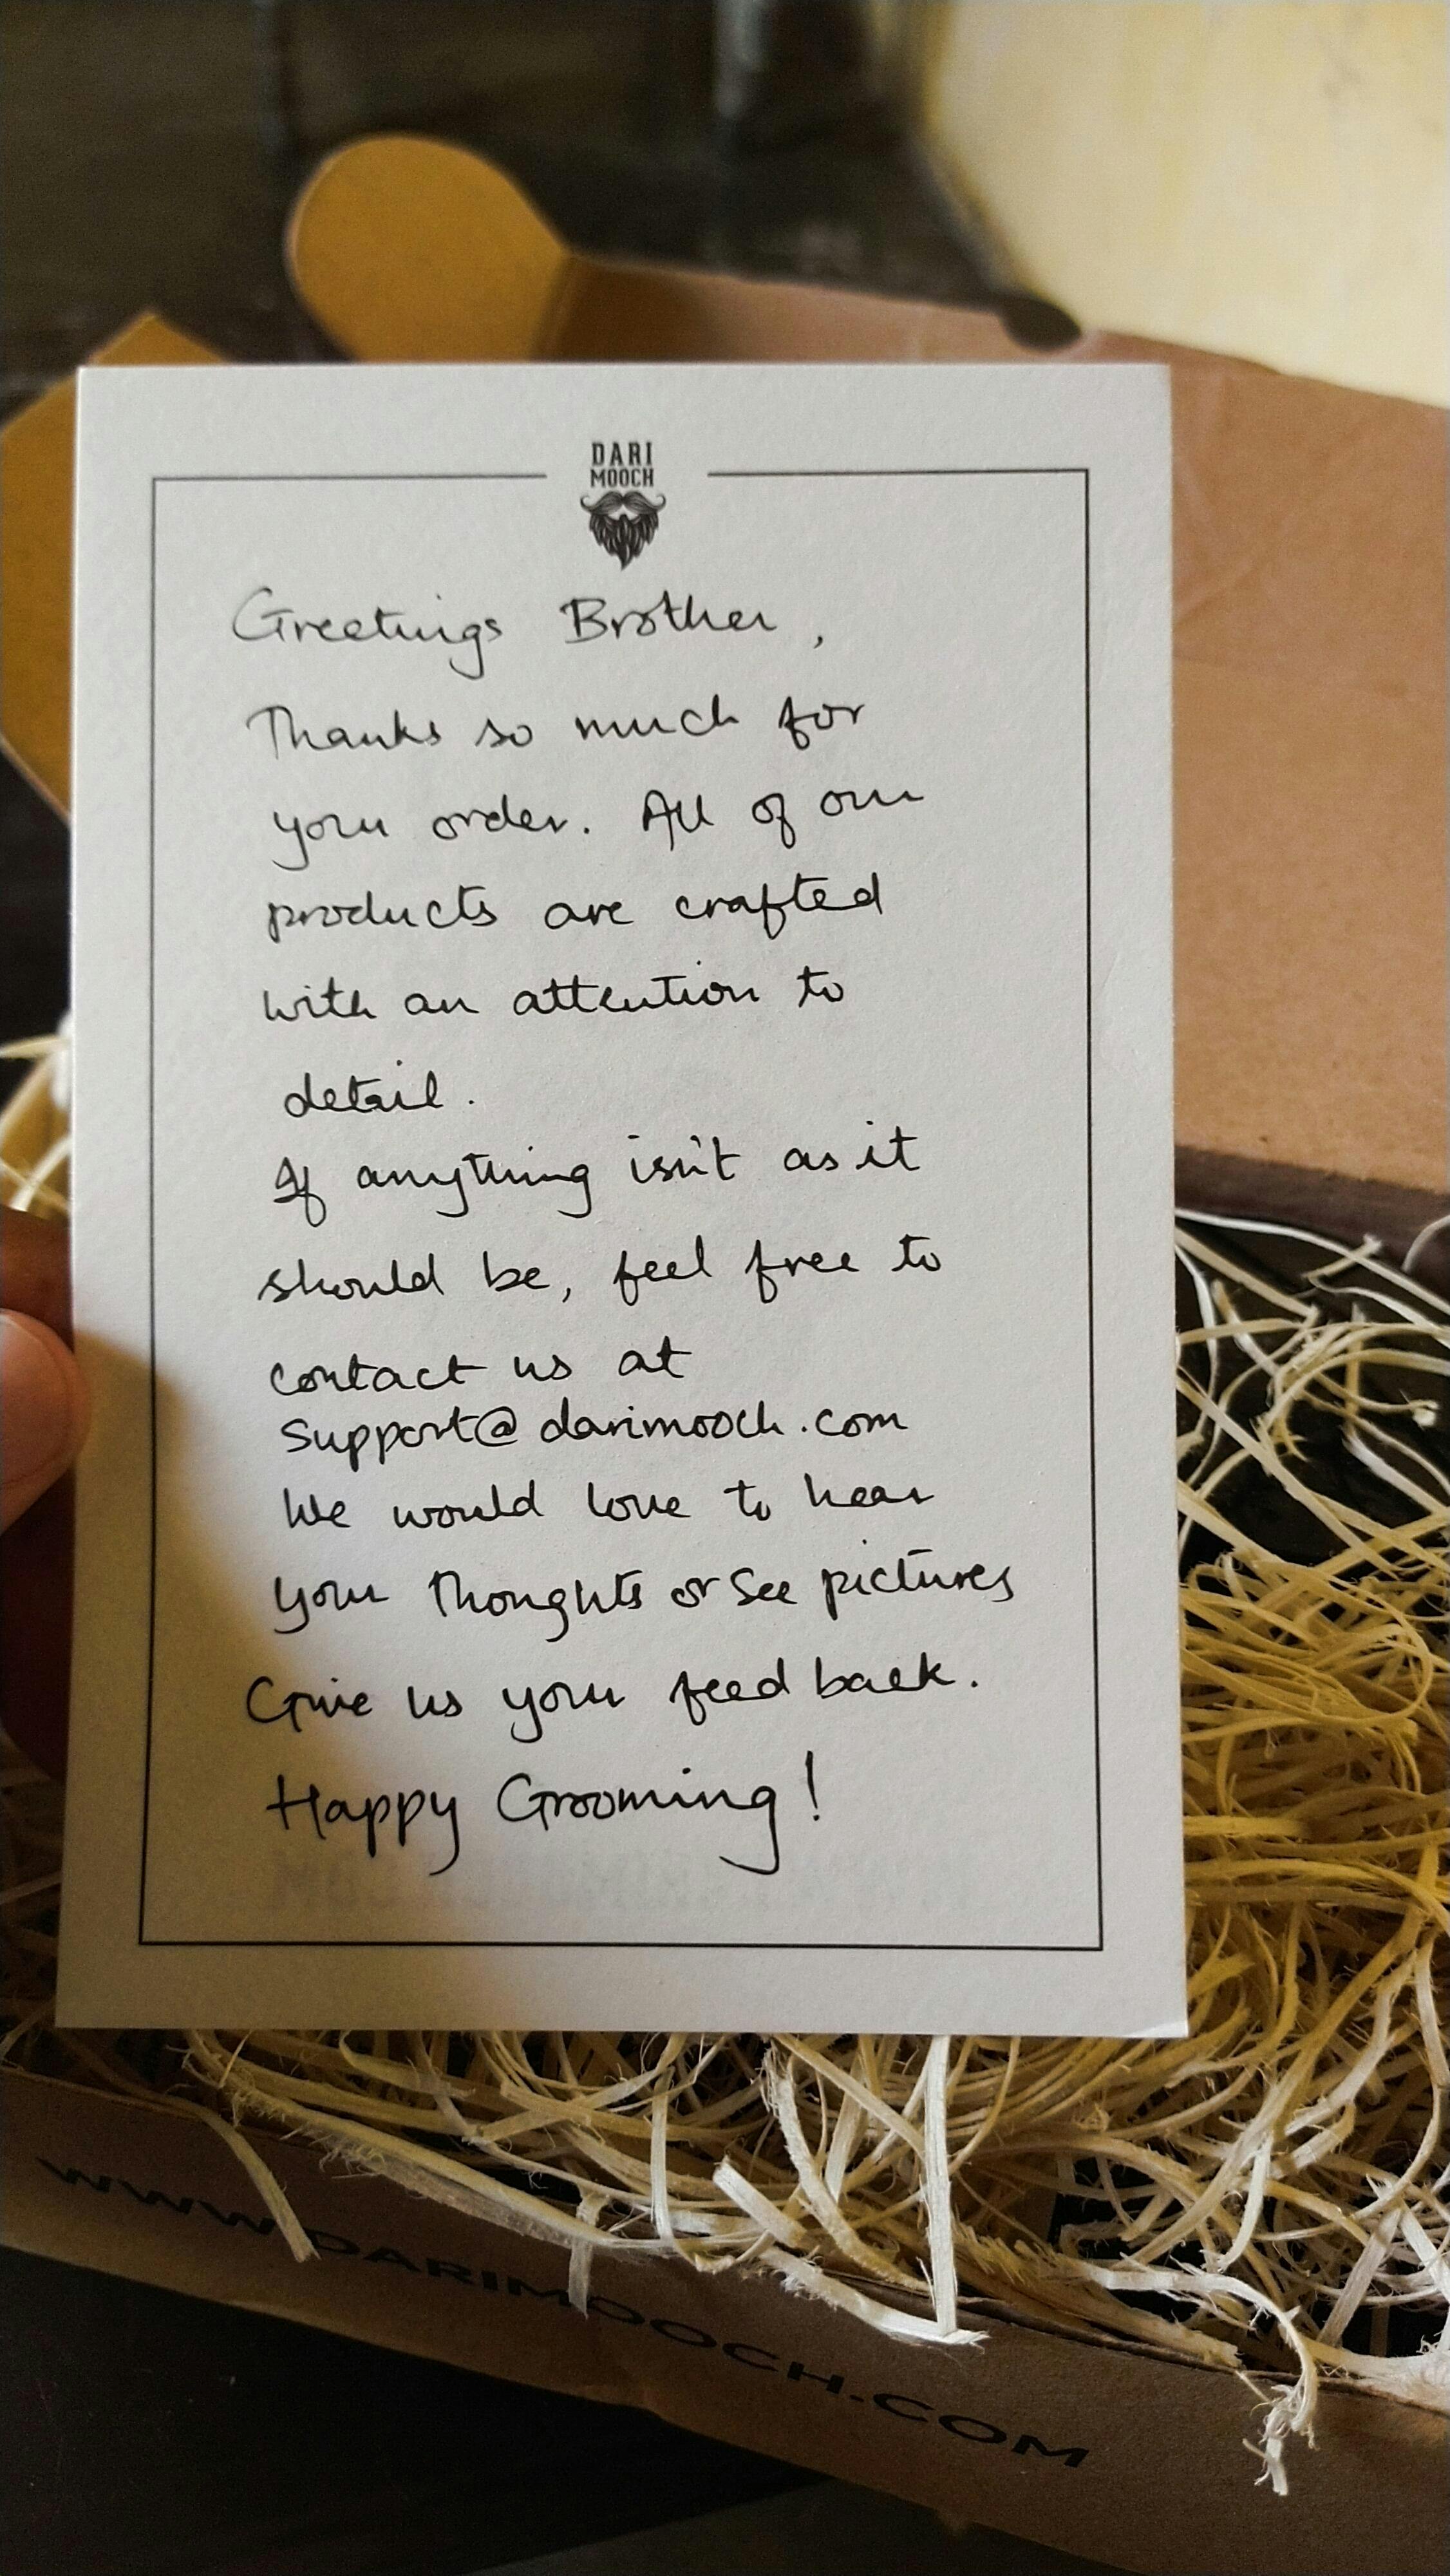 DARI
MOOCH
Greetings Brother,
Thanks so much for
your order. All of our
products are crafted
with an attention to
detail.
If anything isn't as it
should be, feel free to
contact us at
Support@darimooch.com
We would love to hear
your thoughts or see pictures
Give us your feed back.
Happy Grooming!
WWW.DARIMOOCH.COM